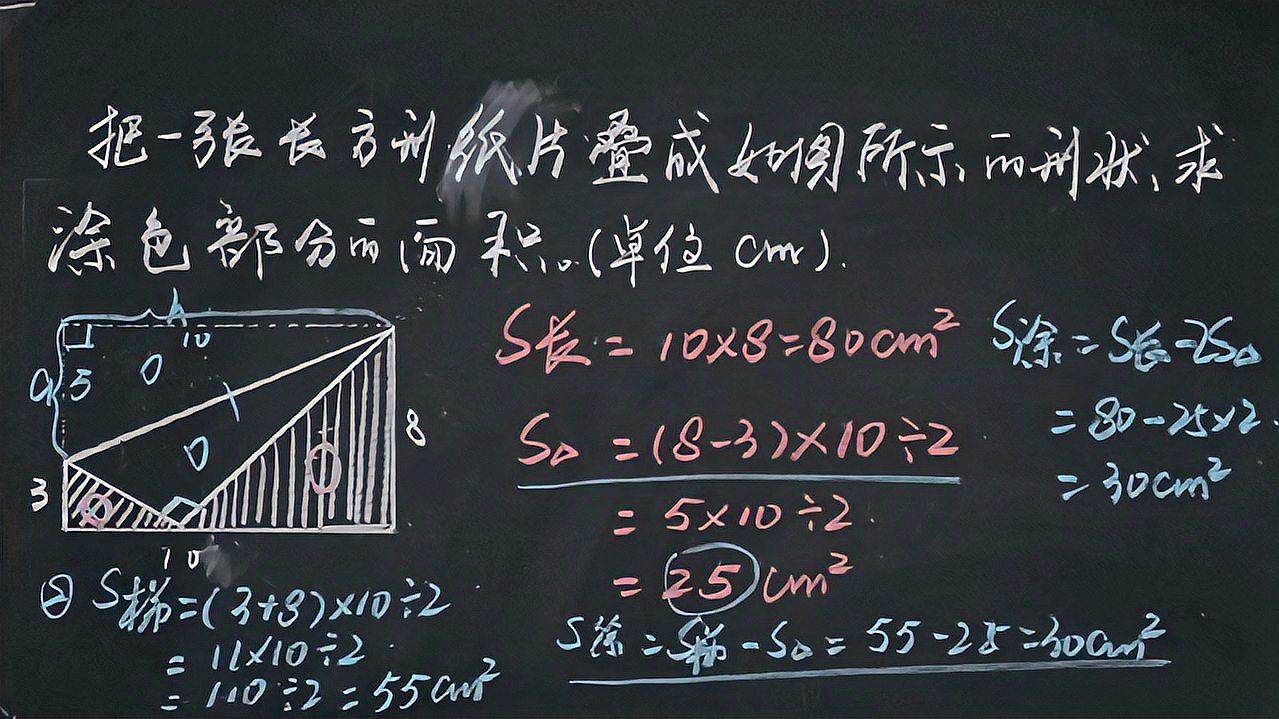 把一张长方形纸片叠成如图所示的形状,求
涂色部分的面积。(单位 cm).
h
10
a
5
3
8
10
S长 = 10×8=80cm²
S△ = (8-3)×10÷2
= 5×10÷2
= 25cm²
S涂 = S长-2S△
= 80-25×2
= 30cm²
② S梯=(3+8)×10÷2
= 11×10÷2
= 110÷2=55cm²
S涂 = S梯-S△ = 55-25=30cm²